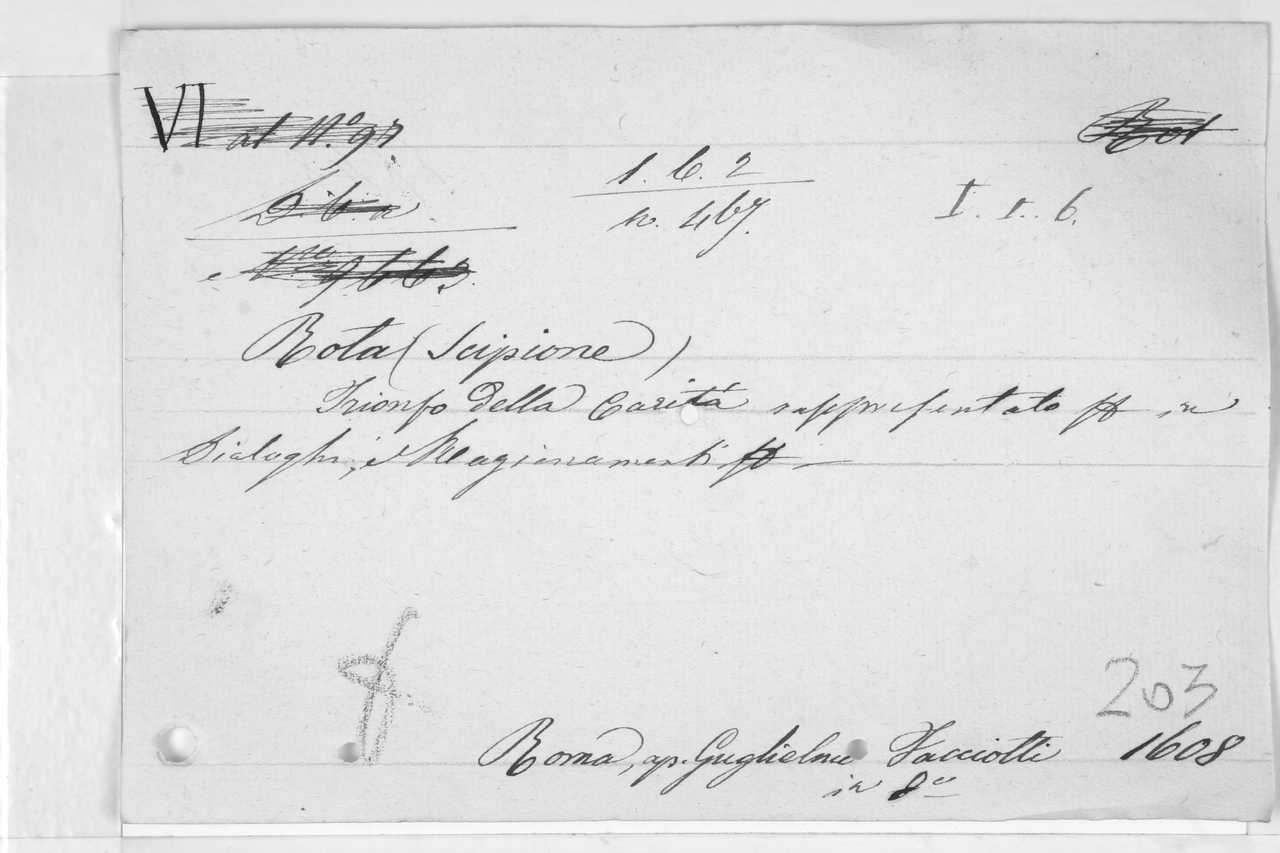 VI al N.º 97
Rot
1. 6. 2
n. 467.
I. 1. 6.
Rota (Scipione)
Trionfo della Carità rappresentato in
Dialoghi, e Ragionamenti
203
Roma, ap. Guglielmo Facciotti 1608
in 8º